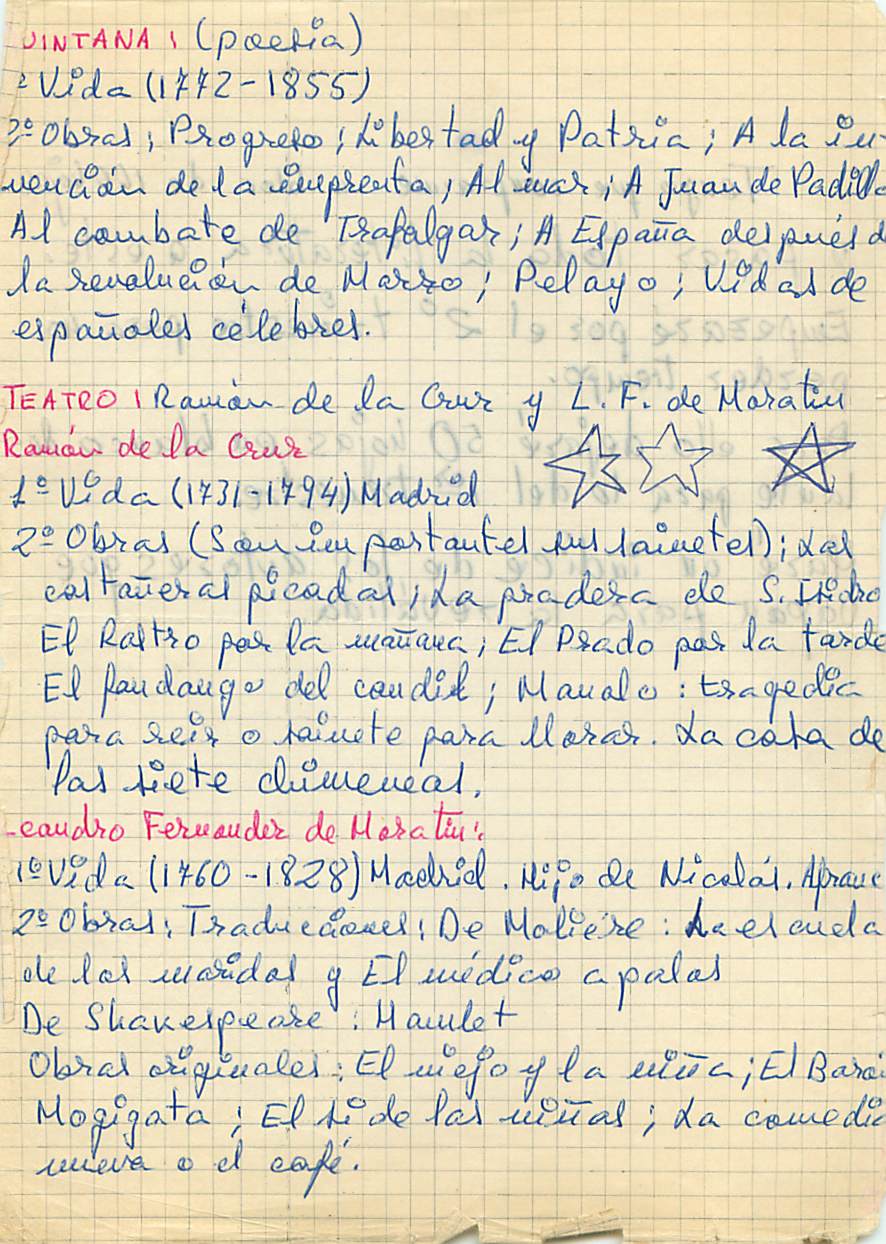 UINTANA: (poesía)
º Vida (1772-1855)
2º Obras; Progreso; Libertad y Patria; A la in-
vención de la imprenta; Al mar; A Juan de Padilla
Al combate de Trafalgar; A España después d
la revolución de Marzo; Pelayo; Vidas de
españoles célebres.
TEATRO: Ramón de la Cruz y L. F. de Moratín
Ramón de la Cruz
1º Vida (1731-1794) Madrid
2º Obras (Son importantes sus sainetes); Las
castañeras picadas; La pradera de S. Isidro
El Rastro por la mañana; El Prado por la tarde
El fandango del candil; Manolo: tragedia
para reir o sainete para llorar. La casa de
las siete chimeneas.
Leandro Fernandez de Moratín:
1º Vida (1760-1828) Madrid. Hijo de Nicolás. Afranc
2º Obras: Traducciones: De Moliére: La escuela
de los maridos y El médico a palos
De Shakespeare: Hamlet
Obras originales: El viejo y la niña; El Baró
Mogigata; El sí de las niñas; La comedia
nueva o el café.